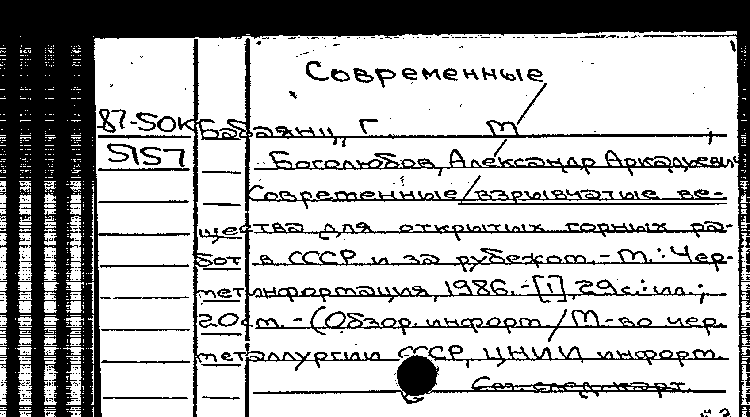 Современные
87-SOK Бабаянц, Г М
5157 Боголюбов, Александр Аркадьевич
Современные взрывчатые ве-
щества для открытых горных ра-
бот в СССР и за рубежом. - М.: Чер-
метинформация, 1986. - [1], 29 с.: ил.;
20 см. - (Обзор. информ / М-во чер.
металлургии СССР, ЦНИИ информ.
См. след. карт.